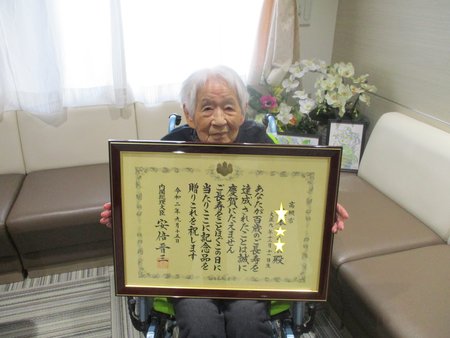 殿
あなたが百歳のご長寿を
達成されたことは誠に
慶賀にたえません
ご長寿をことほぐこの日に
当たりここに記念品を
贈りこれを祝します
令和二年九月十五日
内閣総理大臣 安倍晋三